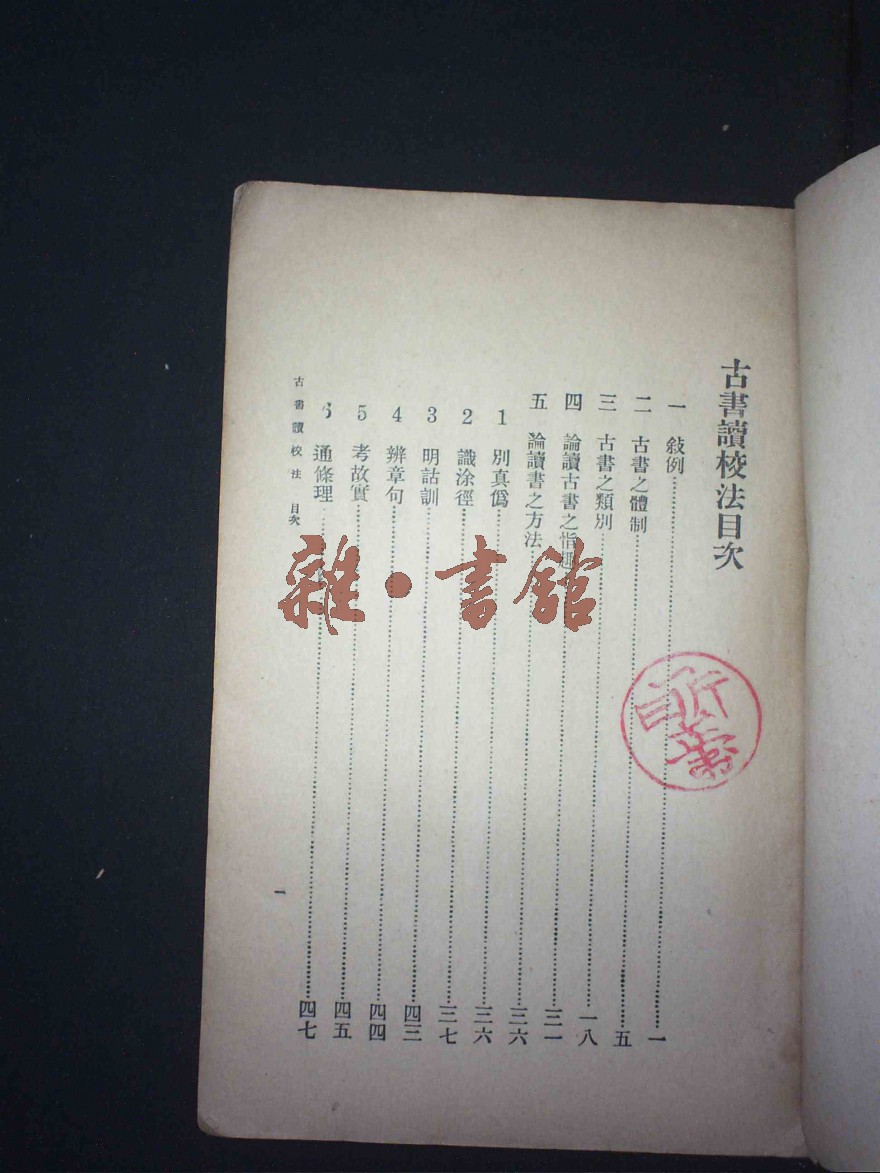 古書讀校法目次
一 敍例……一
二 古書之體制……五
三 古書之類別……一八
四 論讀古書之指趣……三一
五 論讀書之方法……三六
1 別真僞……三六
2 識涂徑……三七
3 明詁訓……四三
4 辨章句……四四
5 考故實……四五
6 通條理……四七
古書讀校法 目次
一
雜·書館